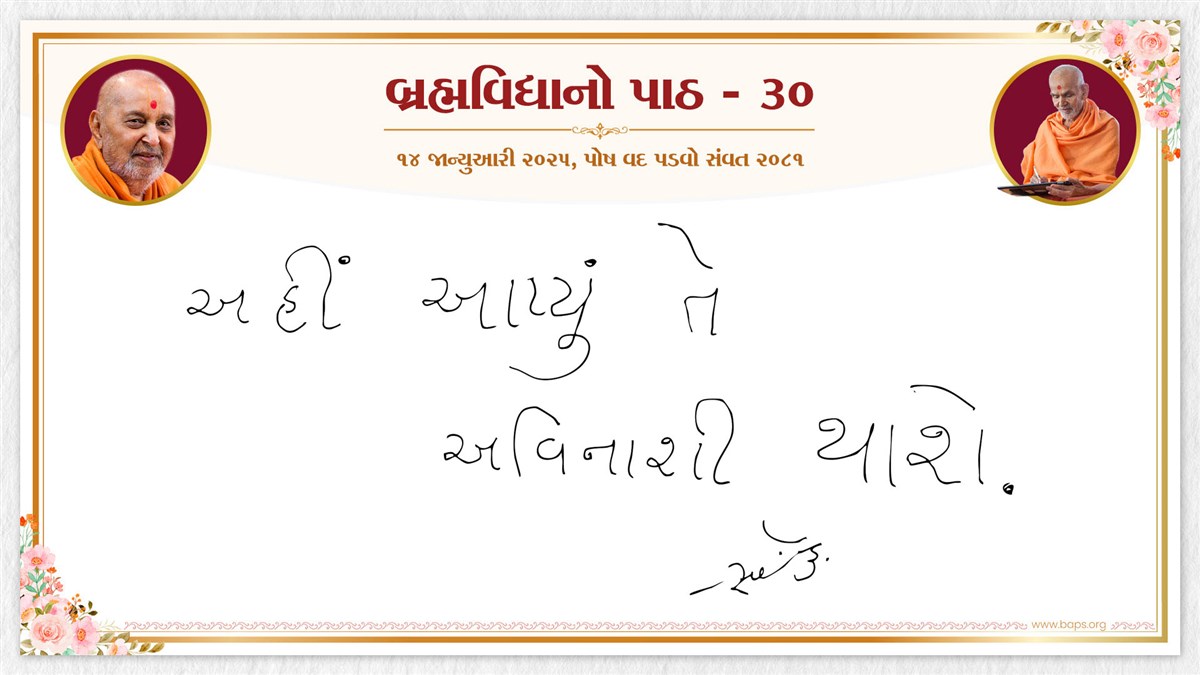 બ્રહ્મવિદ્યાનો પાઠ - ૩૦
૧૪ જાન્યુઆરી ૨૦૨૫, પોષ વદ પડવો સંવત ૨૦૮૧
અહીં આપ્યું તે
અવિનાશી થાશે.
www.baps.org